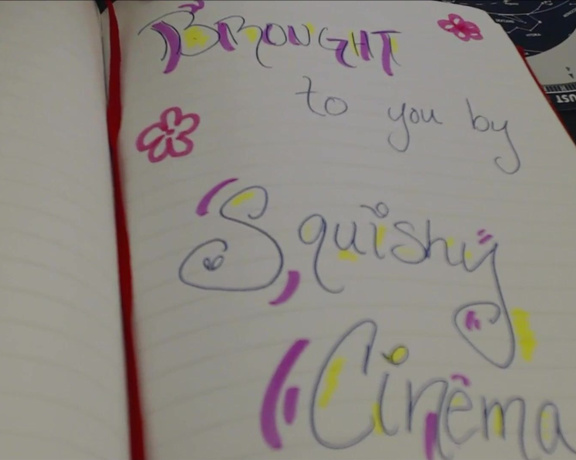 BROUGHT
to you by
Squishy
Cinema